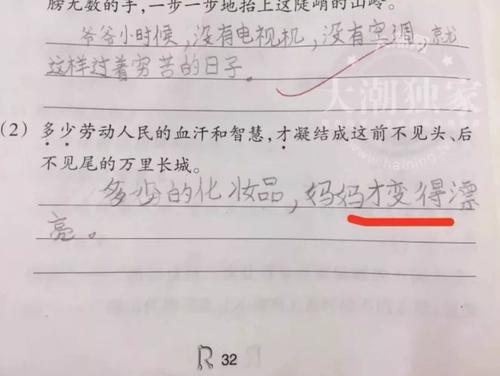 膀无数的手,一步一步地抬上这陡峭的山岭。
爷爷小时候,没有电视机,没有空调,就
这样过着穷苦的日子。
大潮独家
(2) 多少劳动人民的血汗和智慧,才凝结成这前不见头、后
不见尾的万里长城。
多少的化妆品,妈妈才变得漂
亮。
32